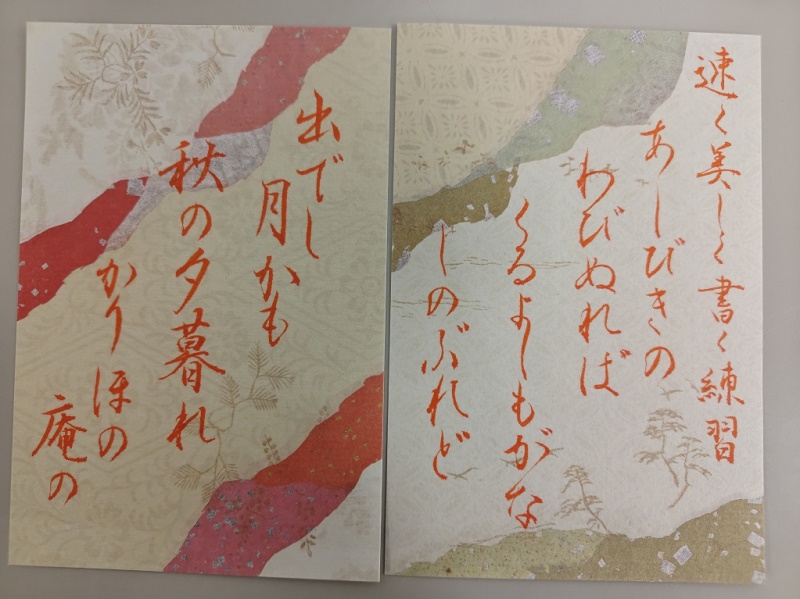 速く美しく書く練習
あしびきの
わびぬれば
くるよしもがな
しのぶれど
出でし
月かも
秋の夕暮れ
かりほの
庵の